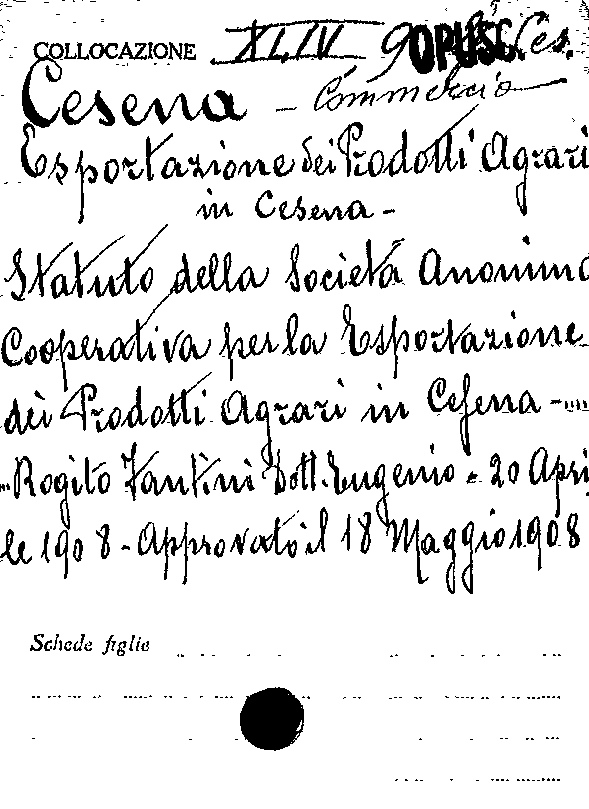 COLLOCAZIONE XLIV OPUSC. Ces.
Cesena - Commercio
Esportazione dei Prodotti Agrari
in Cesena -
Statuto della Società Anonima
Cooperativa per la Esportazione
dei Prodotti Agrari in Cesena -
Rogito Fantini Dott. Eugenio - 20 Apri
le 1908 - Approvato il 18 Maggio 1908
Schede figlie